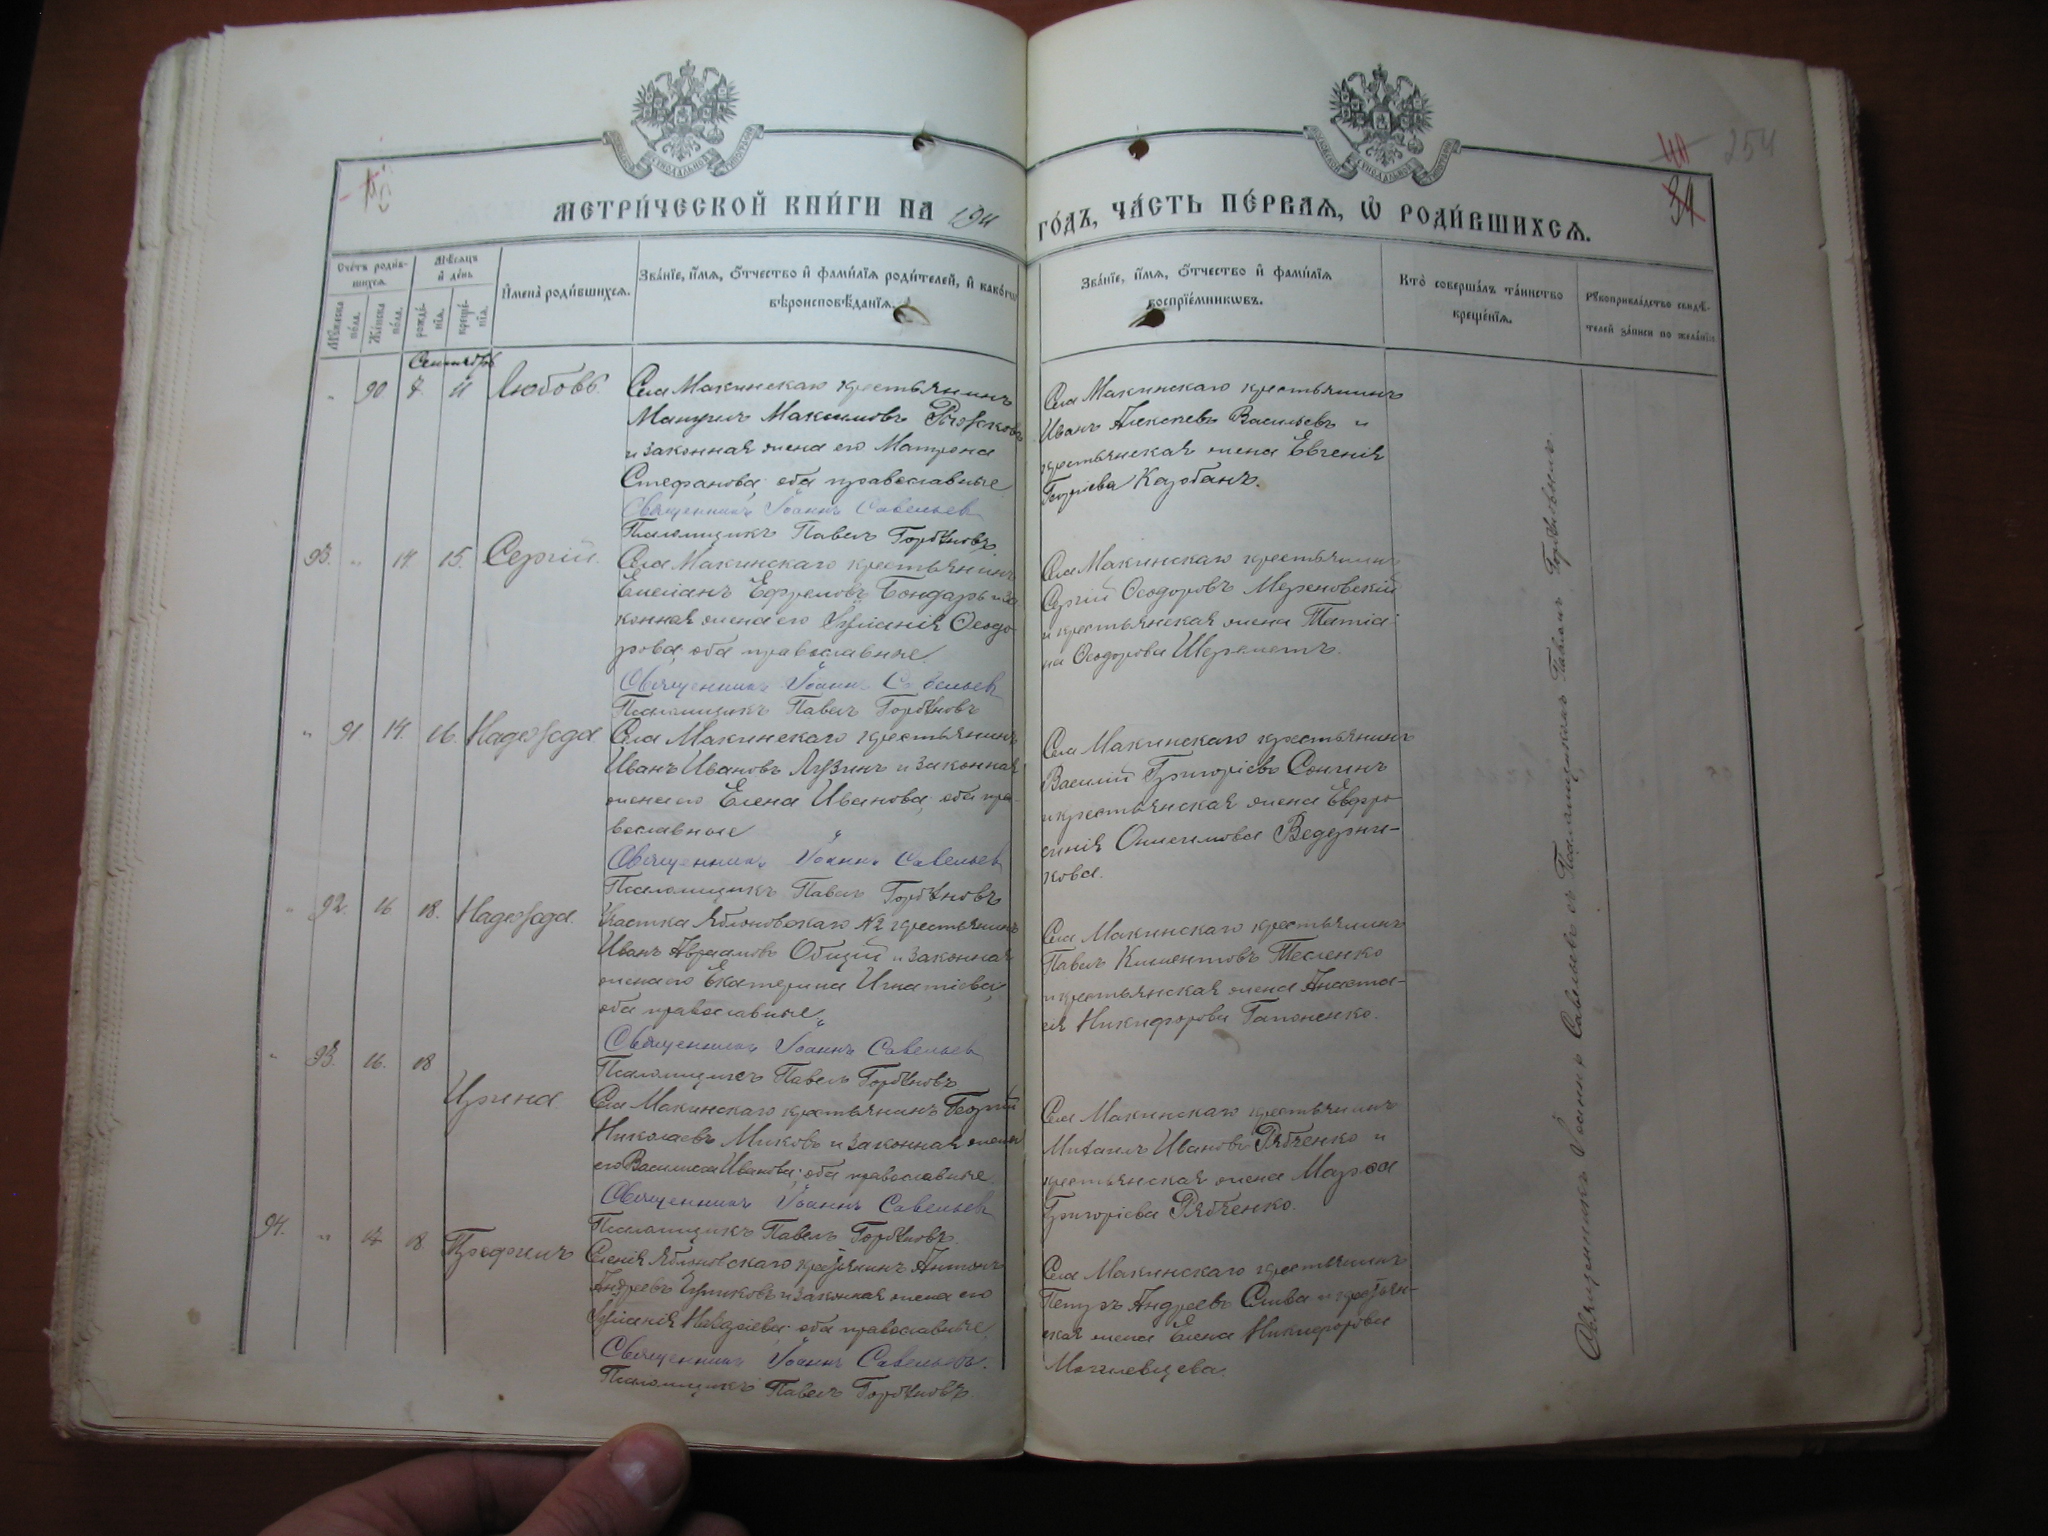 МЕТРИ́ЧЕСКОЙ КНИ́ГИ НА 1911 ГО́ДЪ, ЧА́СТЬ ПЕ́РВАЯ, Ѡ РОДИ́ВШИХСЯ.
254
Сче́тъ роди́вшихся.
Му́жеска по́ла.
Же́нска по́ла.
Мѣ́сяцъ и де́нь
рожде́нїя.
креще́нїя.
Имена̀ роди́вшихся.
Зва́нїе, и́мя, о́тчество и фами́лїя роди́телей, и како́гѡ
вѣроисповѣ́данїя.
Зва́нїе, и́мя, о́тчество и фами́лїя
воспрїе́мникѡвъ.
Кто̀ соверша́лъ та́инство
креще́нїя.
Рꙋкоприкла́дство свидѣ́-
телей за́писи по жела́нїю.
Сентябрь
" 90 7. 11 Любовь.
Села Макинскаго крестьянинъ
Мануилъ Максимовъ Рыжковъ
и законная жена его Матрона
Стефанова, оба православные
Священникъ Іоаннъ Савельевъ
Псаломщикъ Павелъ Горбуновъ.
Села Макинскаго крестьянинъ
Иванъ Алексѣевъ Васильевъ и
крестьянская жена Евгенія
Георгіева Карбанъ.
93. " 14. 15. Сергій.
Села Макинскаго крестьянинъ
Емеліанъ Ефремовъ Бондарь и за-
конная жена его Іуліанія Ѳеодо-
рова, оба православные.
Священникъ Іоаннъ Савельевъ
Псаломщикъ Павелъ Горбуновъ
Села Макинскаго крестьянинъ
Сергій Ѳеодоровъ Мереновскій
и крестьянская жена Татіа-
на Ѳеодорова Шереметъ.
" 91. 14. 16. Надежда
Села Макинскаго крестьянинъ
Иванъ Ивановъ Лузинъ и законная
жена его Елена Иванова, оба пра-
вославные
Священникъ Іоаннъ Савельевъ
Псаломщикъ Павелъ Горбуновъ
Села Макинскаго крестьянинъ
Василій Григоріевъ Сонинъ
и крестьянская жена Евфро-
синія Онисимова Ведерни-
кова.
" 92. 16 18. Надежда.
Участка Яблоновскаго №2 крестьянинъ
Иванъ Авраамовъ Общій и законная
жена его Екатерина Игнатіева,
оба православные
Священникъ Іоаннъ Савельевъ
Псаломщикъ Павелъ Горбуновъ
Села Макинскаго крестьянинъ
Павелъ Климентовъ Тесленко
и крестьянская жена Анаста-
сія Никифорова Гапоненко.
" 93. 16. 18 Ирина
Села Макинскаго крестьянинъ Георгій
Николаевъ Миковъ и законная жена
его Василиса Иванова, оба православные.
Священникъ Іоаннъ Савельевъ
Псаломщикъ Павелъ Горбуновъ.
Села Макинскаго крестьянинъ
Михаилъ Ивановъ Рябченко и
крестьянская жена Марѳа
Григоріева Рябченко.
94. " 17 18. Трофимъ
Селенія Яблоновскаго крестьянинъ Антонъ
Андреевъ и законная жена его
Іуліанія оба православные.
Священникъ Іоаннъ Савельевъ.
Псаломщикъ Павелъ Горбуновъ.
Села Макинскаго крестьянинъ
Петръ Андреевъ Слива и крестьян-
ская жена Елена Никифорова
Могилевцева.
Священникъ Іоаннъ Савельевъ съ Псаломщикомъ Павломъ Горбуновымъ.